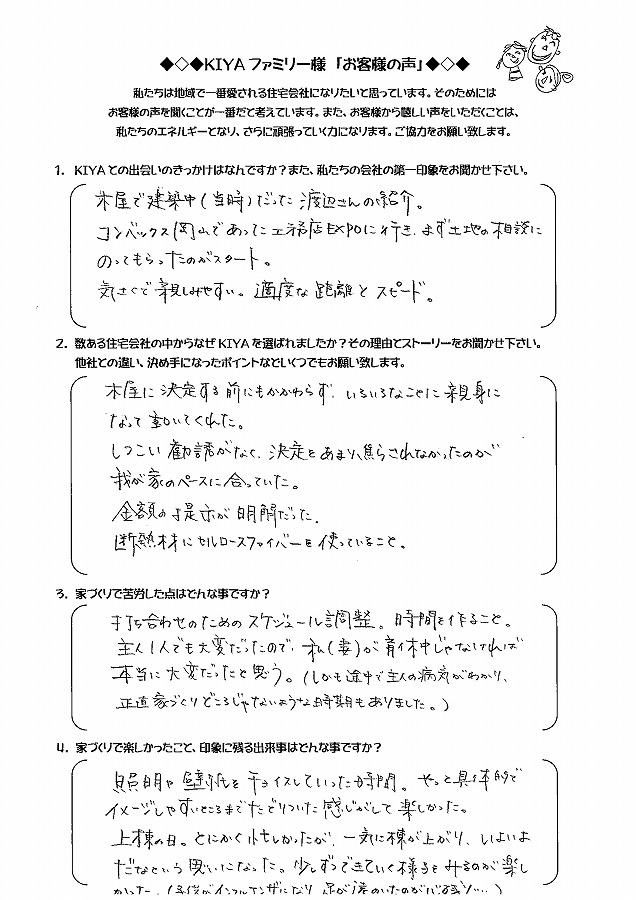 ◆◇◆KIYAファミリー様「お客様の声」◆◇◆
私たちは地域で一番愛される住宅会社になりたいと思っています。そのためには
お客様の声を聞くことが一番だと考えています。また、お客様から嬉しい声をいただくことは、
私たちのエネルギーとなり、さらに頑張っていく力になります。ご協力をお願い致します。
1. KIYAとの出会いのきっかけはなんですか？また、私たちの会社の第一印象をお聞かせ下さい。
木屋で建築中(当時)だった渡辺さんの紹介。
コンベックス岡山であった工務店EXPOに行き、まず土地の相談に
のってもらったのがスタート。
気さくで親しみやすい。適度な距離とスピード。
2. 数ある住宅会社の中からなぜKIYAを選ばれましたか？その理由とストーリーをお聞かせ下さい。
他社との違い、決め手になったポイントなどいくつでもお願い致します。
木屋に決定する前にもかかわらず、いろいろなことに親身に
なって動いてくれた。
しつこい勧誘がなく、決定をあまり焦らされなかったのが
我が家のペースに合っていた。
金額の提示が明朗だった。
断熱材にセルロースファイバーを使っていること。
3. 家づくりで苦労した点はどんな事ですか？
打ち合わせのためのスケジュール調整。時間を作ること。
主人1人でも大変だったので、私(妻)が育休中じゃなければ
本当に大変だったと思う。(しかも途中で主人の病気がわかり、
正直家づくりどころじゃないような時期もありました。)
4. 家づくりで楽しかったこと、印象に残る出来事はどんな事ですか？
照明や壁紙をチョイスしていった時間。やっと具体的で
イメージしやすいところまでたどりついた感じがして楽しかった。
上棟の日。とにかく忙しかったが、一気に棟が上がり、いよいよ
だなという思いになった。少しずつできていく様子をみるのが楽し
かった。(子供がインフルエンザになり、